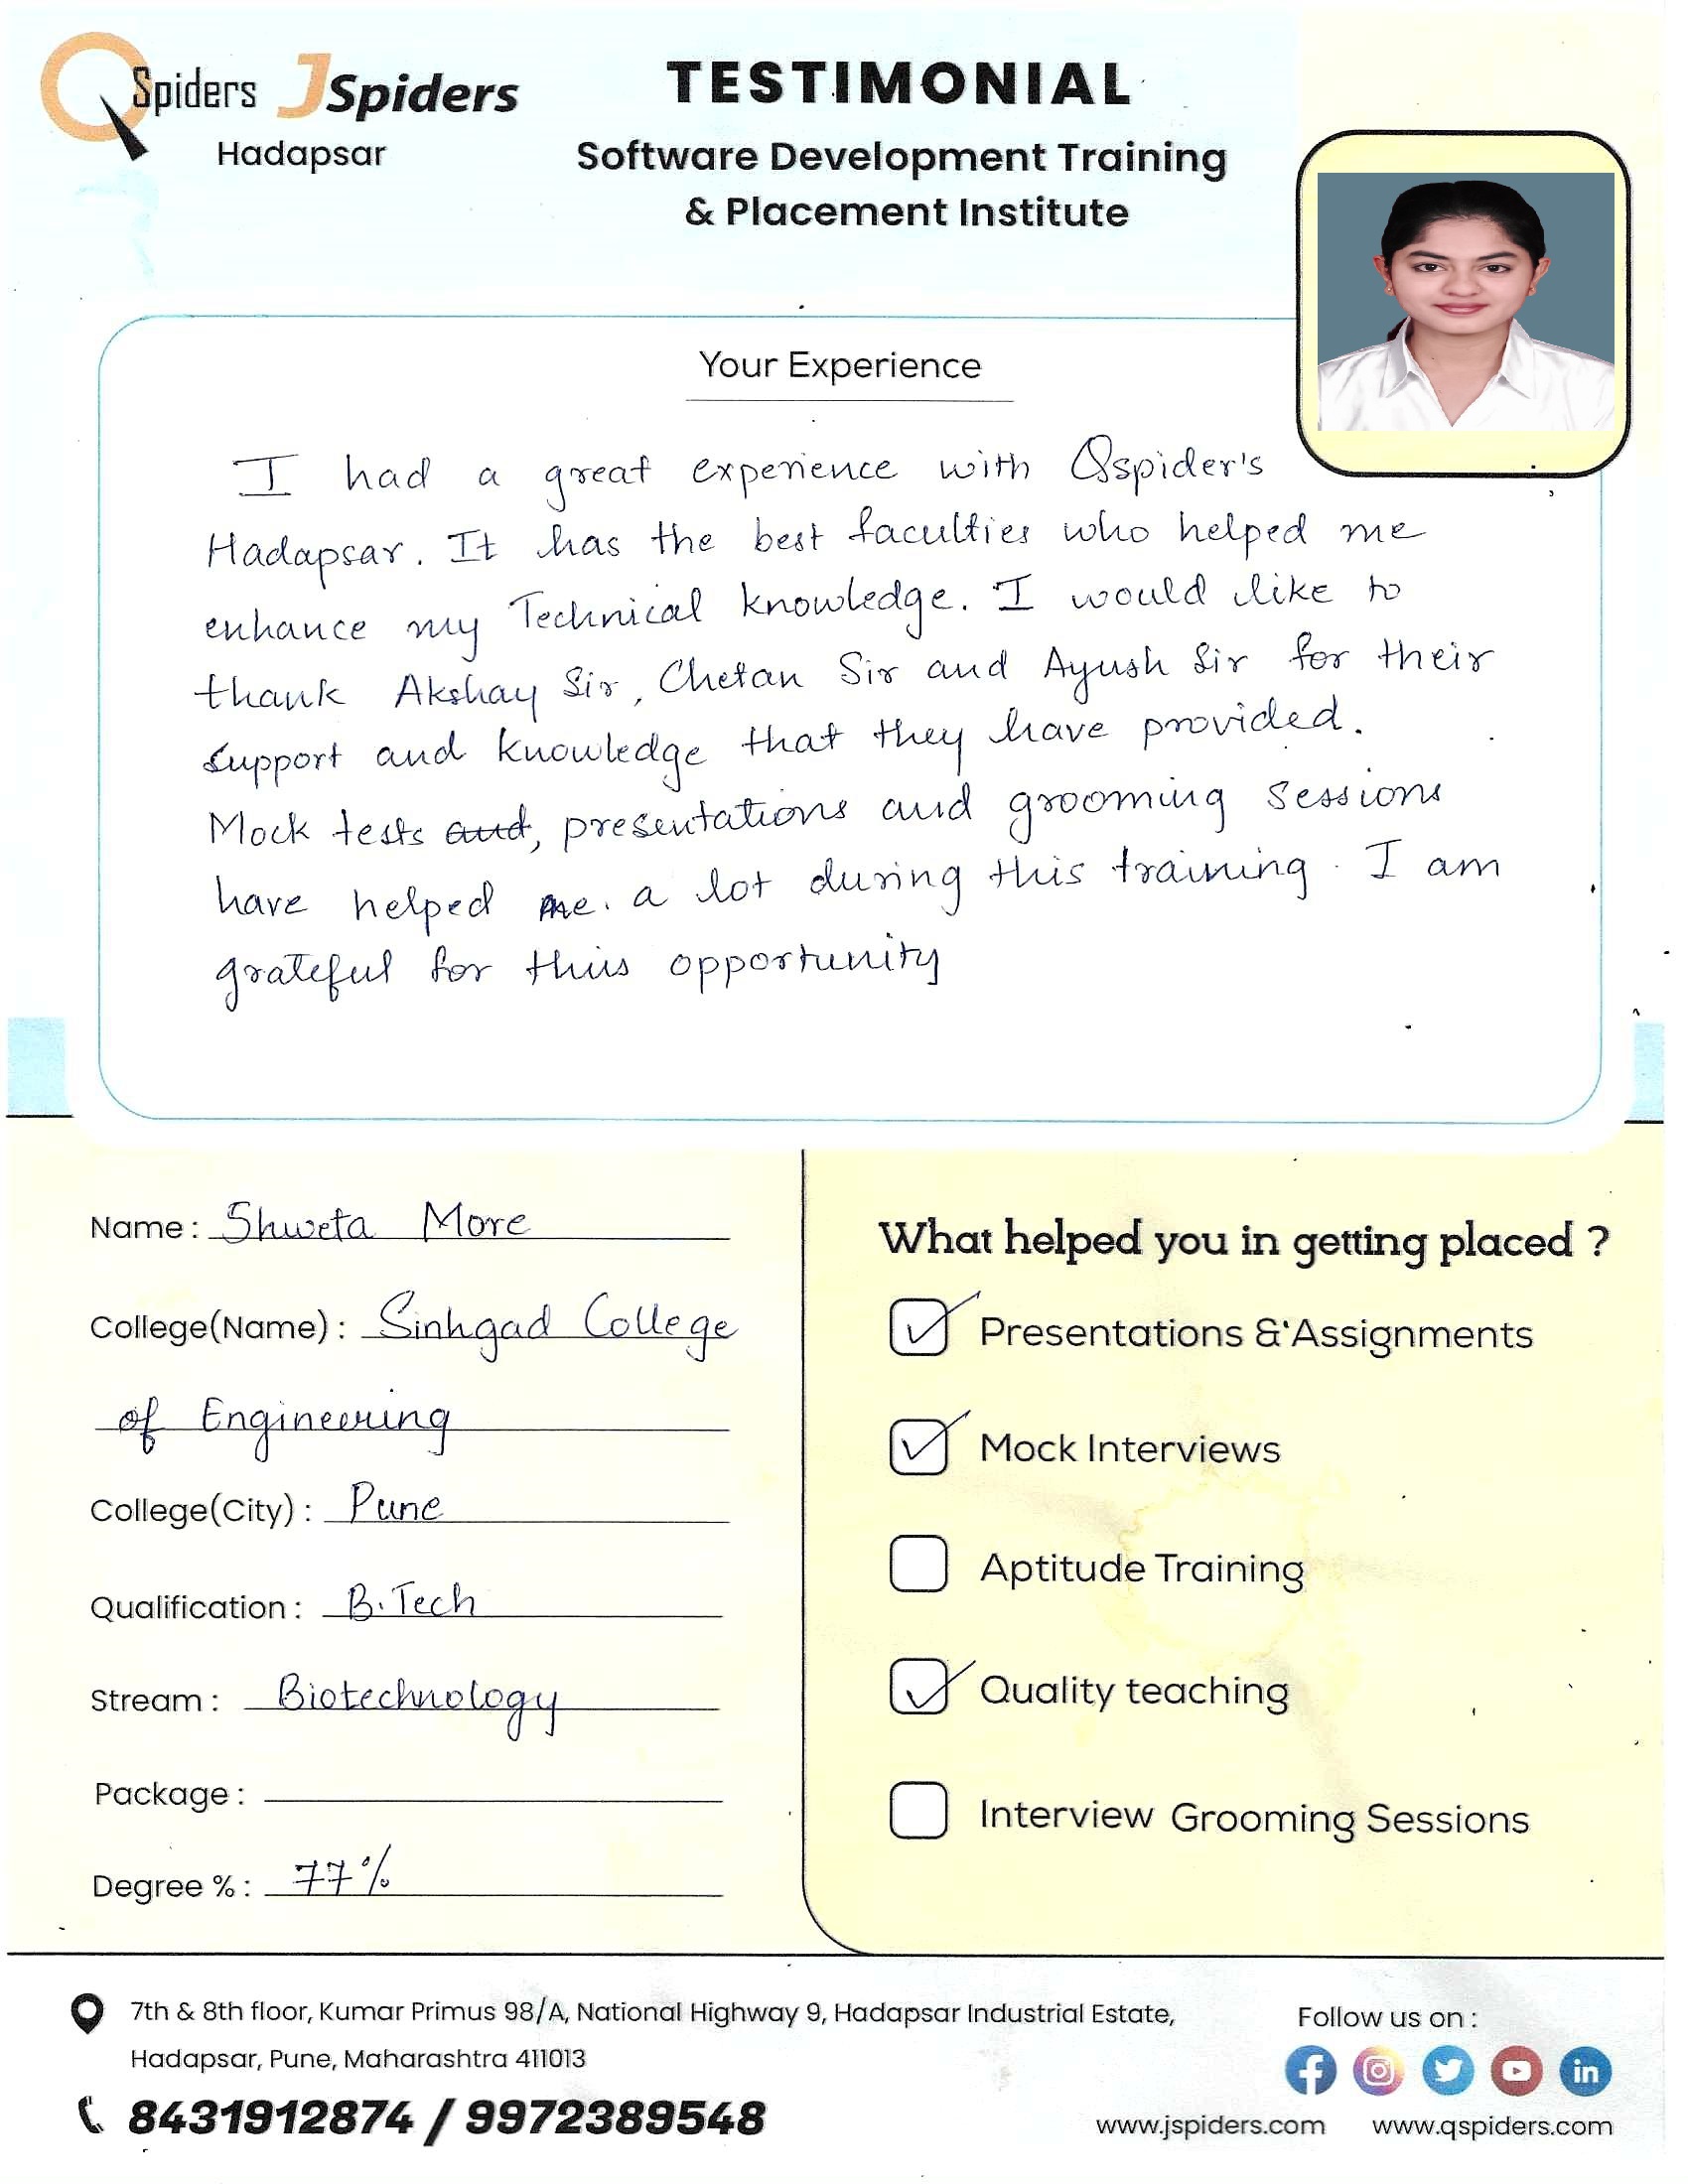 QSpiders JSpiders
Hadapsar
TESTIMONIAL
Software Development Training
& Placement Institute
Your Experience
I had a great experience with Qspider's
Hadapsar. It has the best faculties who helped me
enhance my Technical knowledge. I would like to
thank Akshay Sir, Chetan Sir and Ayush Sir for their
support and knowledge that they have provided.
Mock tests and, presentations and grooming sessions
have helped me. a lot during this training. I am
grateful for this opportunity
Name : Shweta More
College(Name) : Sinhgad College
of Engineering
College(City) : Pune
Qualification : B.Tech
Stream : Biotechnology
Package :
Degree % : 77%
What helped you in getting placed ?
Presentations & Assignments
Mock Interviews
Aptitude Training
Quality teaching
Interview Grooming Sessions
7th & 8th floor, Kumar Primus 98/A, National Highway 9, Hadapsar Industrial Estate,
Hadapsar, Pune, Maharashtra 411013
8431912874 / 9972389548
Follow us on :
www.jspiders.com www.qspiders.com